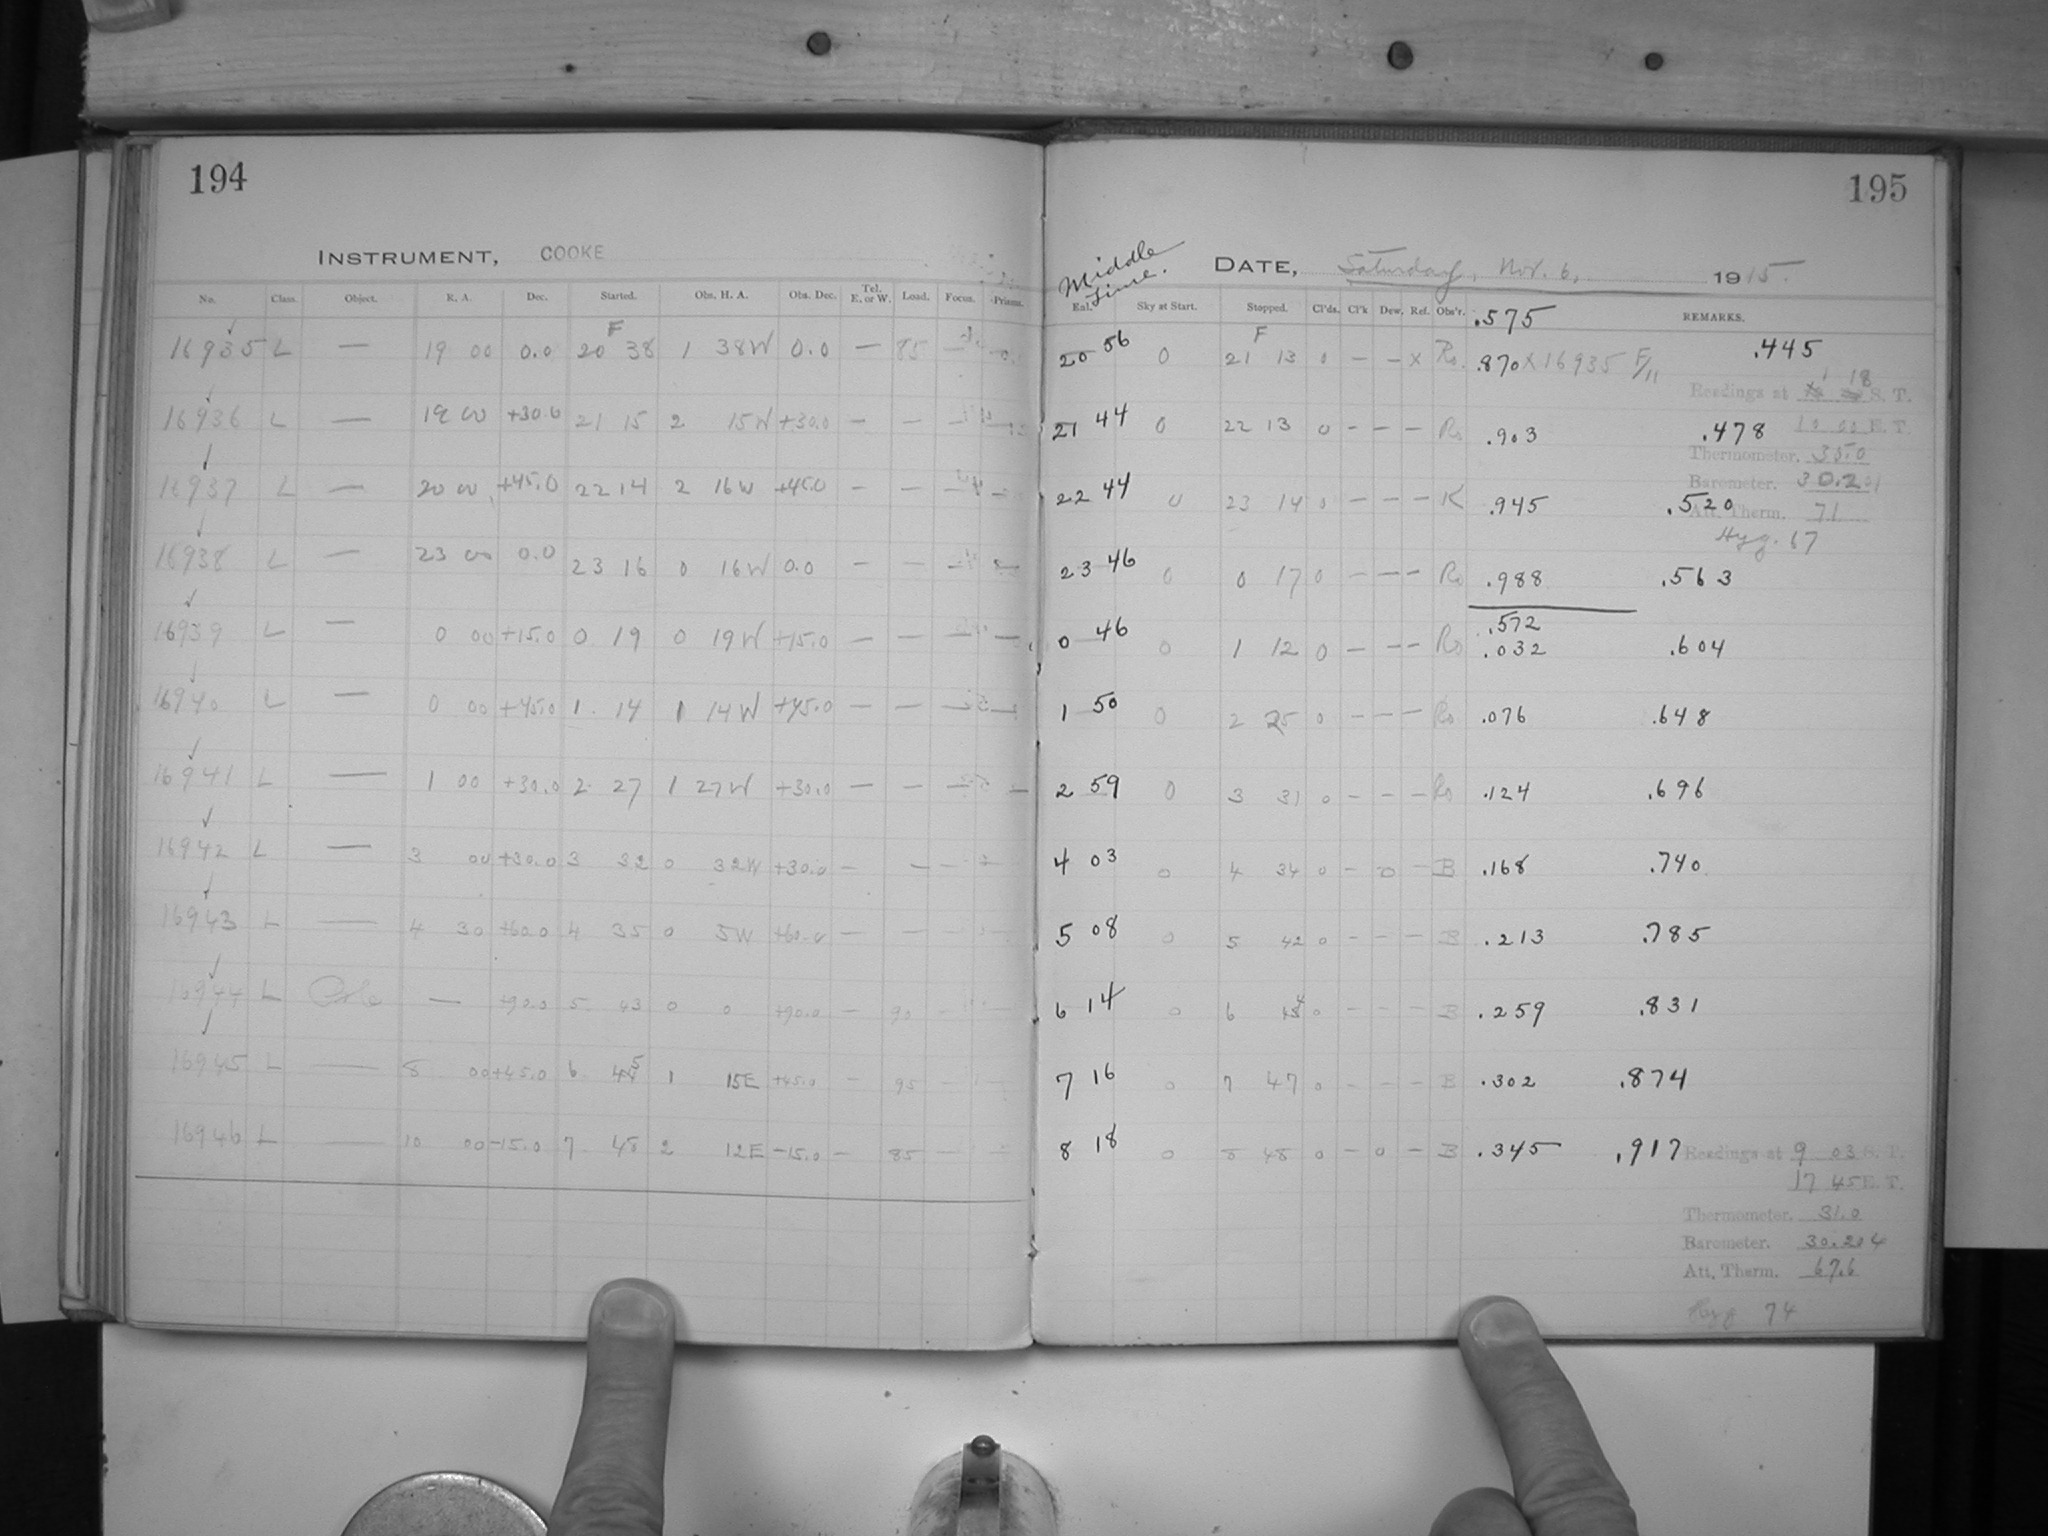 194
INSTRUMENT, COOKE
No. Class. Object. R. A. Dec. Started. Obs. H. A. Obs. Dec. Tel. E. or W. Load. Focus. Prisms.
16935 L — 19 00 0.0 F 20 38 1 38W 0.0 — 85 —
16936 L — 19 00 +30.0 21 15 2 15W +30.0 — — —
16937 L — 20 00 +45.0 22 14 2 16W +45.0 — — —
16938 L — 23 00 0.0 23 16 0 16W 0.0 — — —
16939 L — 0 00 +15.0 0 19 0 19W +15.0 — — — —
16940 L — 0 00 +45.0 1 14 1 14W +45.0 — — — —
16941 L — 1 00 +30.0 2 27 1 27W +30.0 — — — —
16942 L — 3 00 +30.0 3 32 0 32W +30.0 — — —
16943 L — 4 30 +60.0 4 35 0 5W +60.0 — — —
16944 L Pole — +90.0 5 43 0 0 +90.0 — 90 — —
16945 L — 8 00 +45.0 6 45 1 15E +45.0 — 95 — —
16946 L — 10 00 -15.0 7 48 2 12E -15.0 — 85 — —
195
Middle Time.
DATE, Saturday, Nov. 6, 1915.
Exl. Sky at Start. Stopped. Cl'ds. Cl'k Dew. Ref. Obs'r. .575 REMARKS.
20 56 0 F 21 13 0 — — x Ro. .870 x 16935 F/11 .445
Readings at 1 18 S. T.
21 44 0 22 13 0 — — — Ro .903 .478 10 00 E. T.
Thermometer. 35.0
Barometer. 30.201
22 44 0 23 14 0 — — — K .945 .520 Att. Therm. 71
Hyg. 67
23 46 0 0 17 0 — — — Ro .988 .563
.572
0 46 0 1 12 0 — — — Ro .032 .604
1 50 0 2 25 0 — — — Ro .076 .648
2 59 0 3 31 0 — — — Ro .124 .696
4 03 0 4 34 0 — 0 — B .168 .740
5 08 0 5 42 0 — — — B .213 .785
6 14 0 6 44 0 — — — B .259 .831
7 16 0 7 47 0 — — — B .302 .874
8 18 0 8 48 0 — 0 — B .345 .917 Readings at 9 03 S. T.
17 45 E. T.
Thermometer. 31.0
Barometer. 30.204
Att. Therm. 67.6
Hyg 74